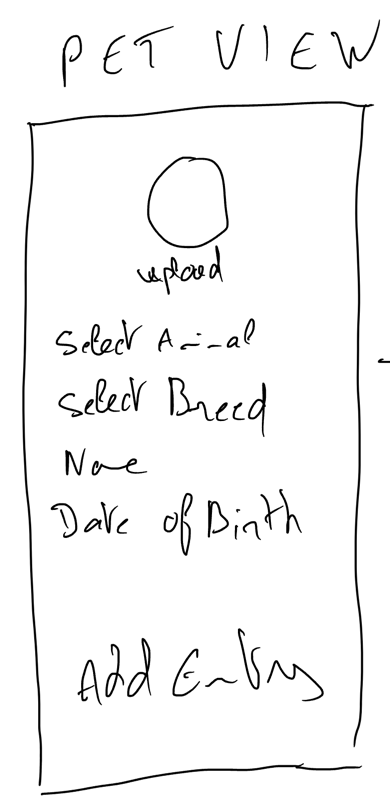 PET VIEW
upload
Select Animal
Select Breed
Name
Date of Birth
Add Entry